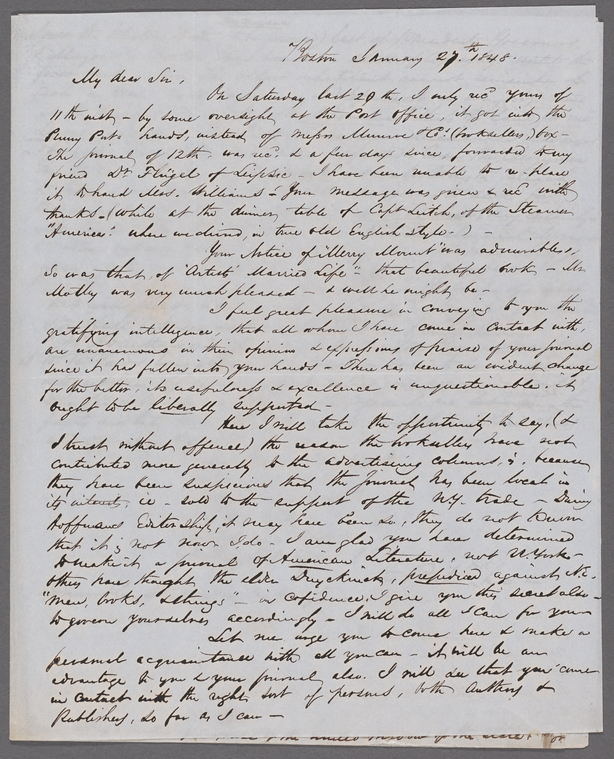 Boston January 27.th 1848.
My dear Sir,
On Saturday last 20th, I only recd yours of
11th inst - by some oversight at the Post Office, it got into the
Penny Posts hands, instead of Messrs Munroe & Co's (booksellers) box -
The journal of 12th was recd, & a few days since, forwarded to my
friend Dr Flügel of Leipsic - I have been unable to re-place
it to hand Mrs. Williams - Your message was given & recd with
thanks - (while at the dinner table of Capt Leitch, of the Steamer
"America". where we dined, in true old English style -) -
Your Notice of "Merry Mount" was admirable,
so was that of "Artists Married Life" - that beautiful book - Mr
Motley was very much pleased - & well he might be -
I feel great pleasure in conveying to you the
gratifying intelligence, that all whom I have come in contact with,
are unanimous in their opinion & expressions of praise of your journal
since it has fallen into your hands - There has been an evident change
for the better, its usefulness & excellence is unquestionable. It
ought to be liberally supported -
Here I will take the opportunity to say, (&
I trust without offence) the reason the booksellers have not
contributed more generally to the advertising columns, is, because
they have been suspicious that the Journal has been local in
its interests, ie - sold to the support of the N.Y. trade - During
Hoffmans Editorship, it may have been so, they do not know
that it is not now I do - I am glad you have determined
to make it a journal of American Literature, not N. York -
Others have thought the elder Duyckinck, prejudiced against N.E.
"Men, books, & things" - in confidence, I give you this secret also -
to govern yourselves accordingly - I will do all I can for you -
Let me urge you to come here & make a
personal acquaintance with all you can - it will be an
advantage to you & your journal also. I will see that you come
in contact with the right sort of persons, both Authors &
Publishers, so far as I can -